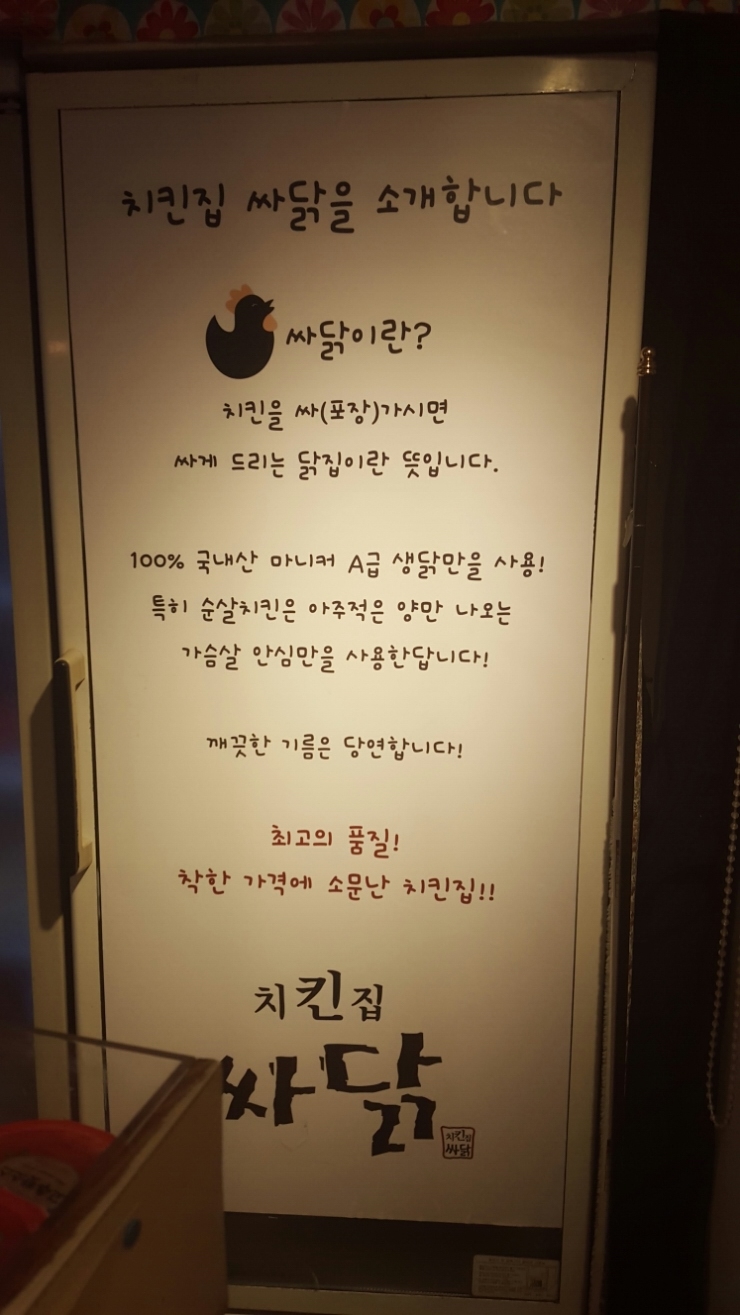 치킨집 싸닭을 소개합니다
싸닭이란?
치킨을 싸(포장)가시면
싸게 드리는 닭집이란 뜻입니다.
100% 국내산 마니커 A급 생닭만을 사용!
특히 순살치킨은 아주적은 양만 나오는
가슴살 안심만을 사용한답니다!
깨끗한 기름은 당연합니다!
최고의 품질!
착한 가격에 소문난 치킨집!!
치킨집
싸닭
치킨집
싸닭